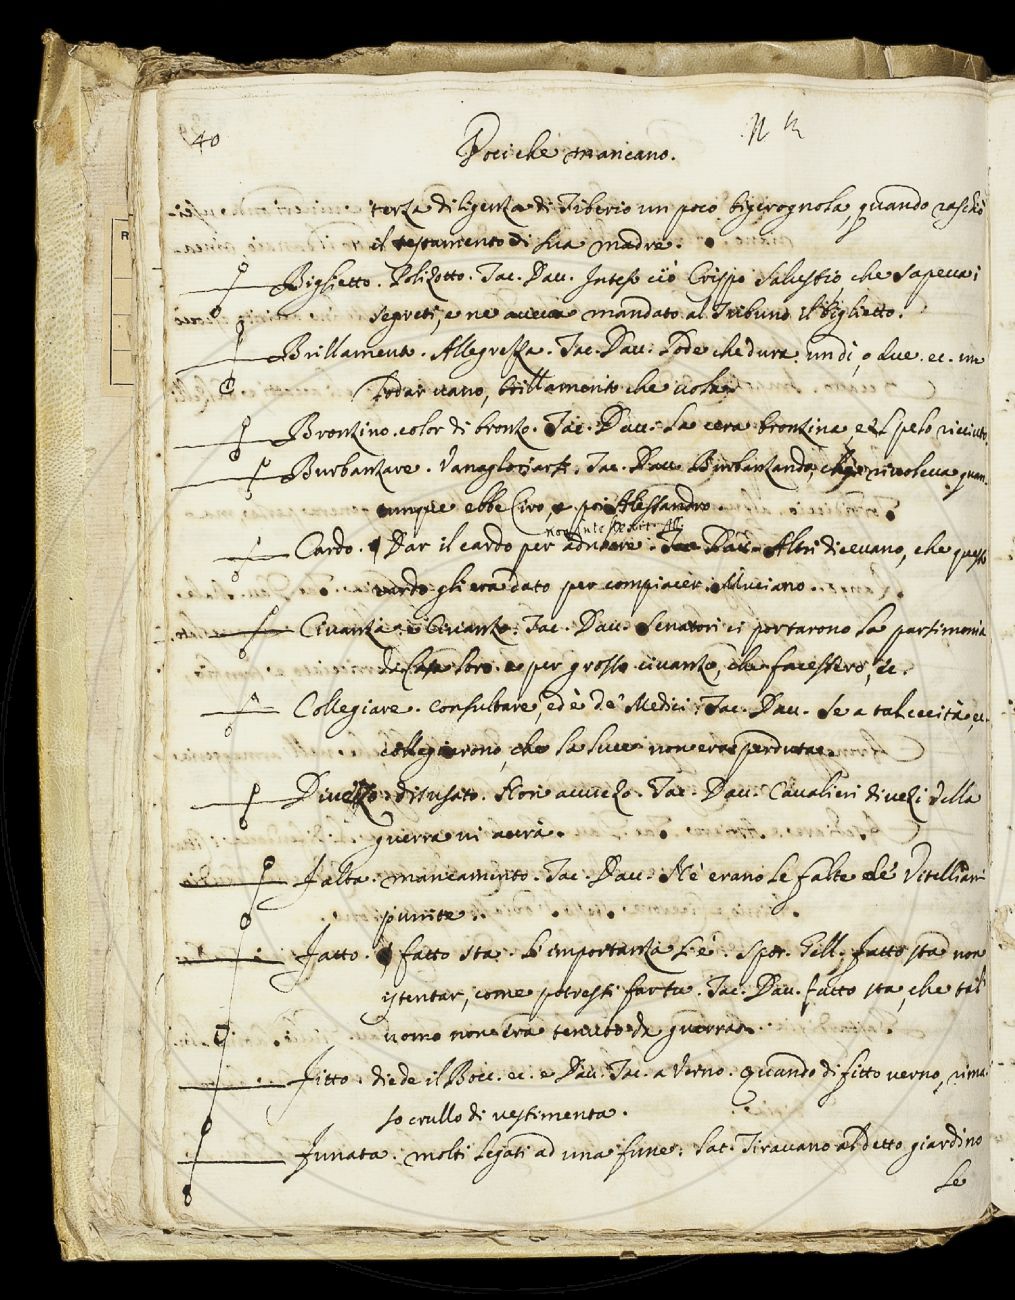 40
Voci che mancano.
terza diligenza di Tiberio un poco bizerognola, quando raschiò
il testamento di sua madre.
Biglietto. Polizotto. Tac. Dav. Inteso ciò Crispo Salustio, che sapeva i
segreti, e ne aveva mandato al Tribuno il biglietto.
Brillamento. Allegrezza. Tac. Dav. Lode che dura un dì, o due. ec. un
lodar vano, brillamento che vola.
Bronzino. color di bronzo. Tac. Dav. La cera bronzina, e 'l pelo ricciuto.
Burbanzare. Vanagloriarsi. Tac. Dav. Burbanzando, che rivoleva quan-
tunque ebbe Ciro, e poi Alessandro.
Cardo. Dar il cardo per adulare. Tac. Dav. Altri dicevano, che questo
cardo gli era dato per compiacer Muciano.
Civanza: e Civanzo: Tac. Dav. Senatori ci portarono la parsimonia
di Casa loro. e per grosso civanzo, che facessero, ec.
Collegiare. Consultare, ed è de' Medici. Tac. Dav. Se a tal cecità, ec.
collegiarono, che la luce non era perduta.
Divezzo. disusato. fuori avvezo. Tac. Dav. Cavalieri divezi della
guerra vi avrà.
Falta. mancamento. Tac. Dav. Nè erano le falte de' Vitelliani
punite.
Fatto. fatto sta. L'importanza si è. Spor. Gell. fatto sta non
istentar, come potresti far tu. Tac. Dav. fatto sta, che tal
uomo non era tenuto da guerra.
Fitto. diede il Bocc. ec. e Dav. Tac. a Verno. Quando di fitto verno, rima-
so crullo di vestimenta.
Funata. molti legati ad una fune. Tac. Tiravano al detto giardino
le